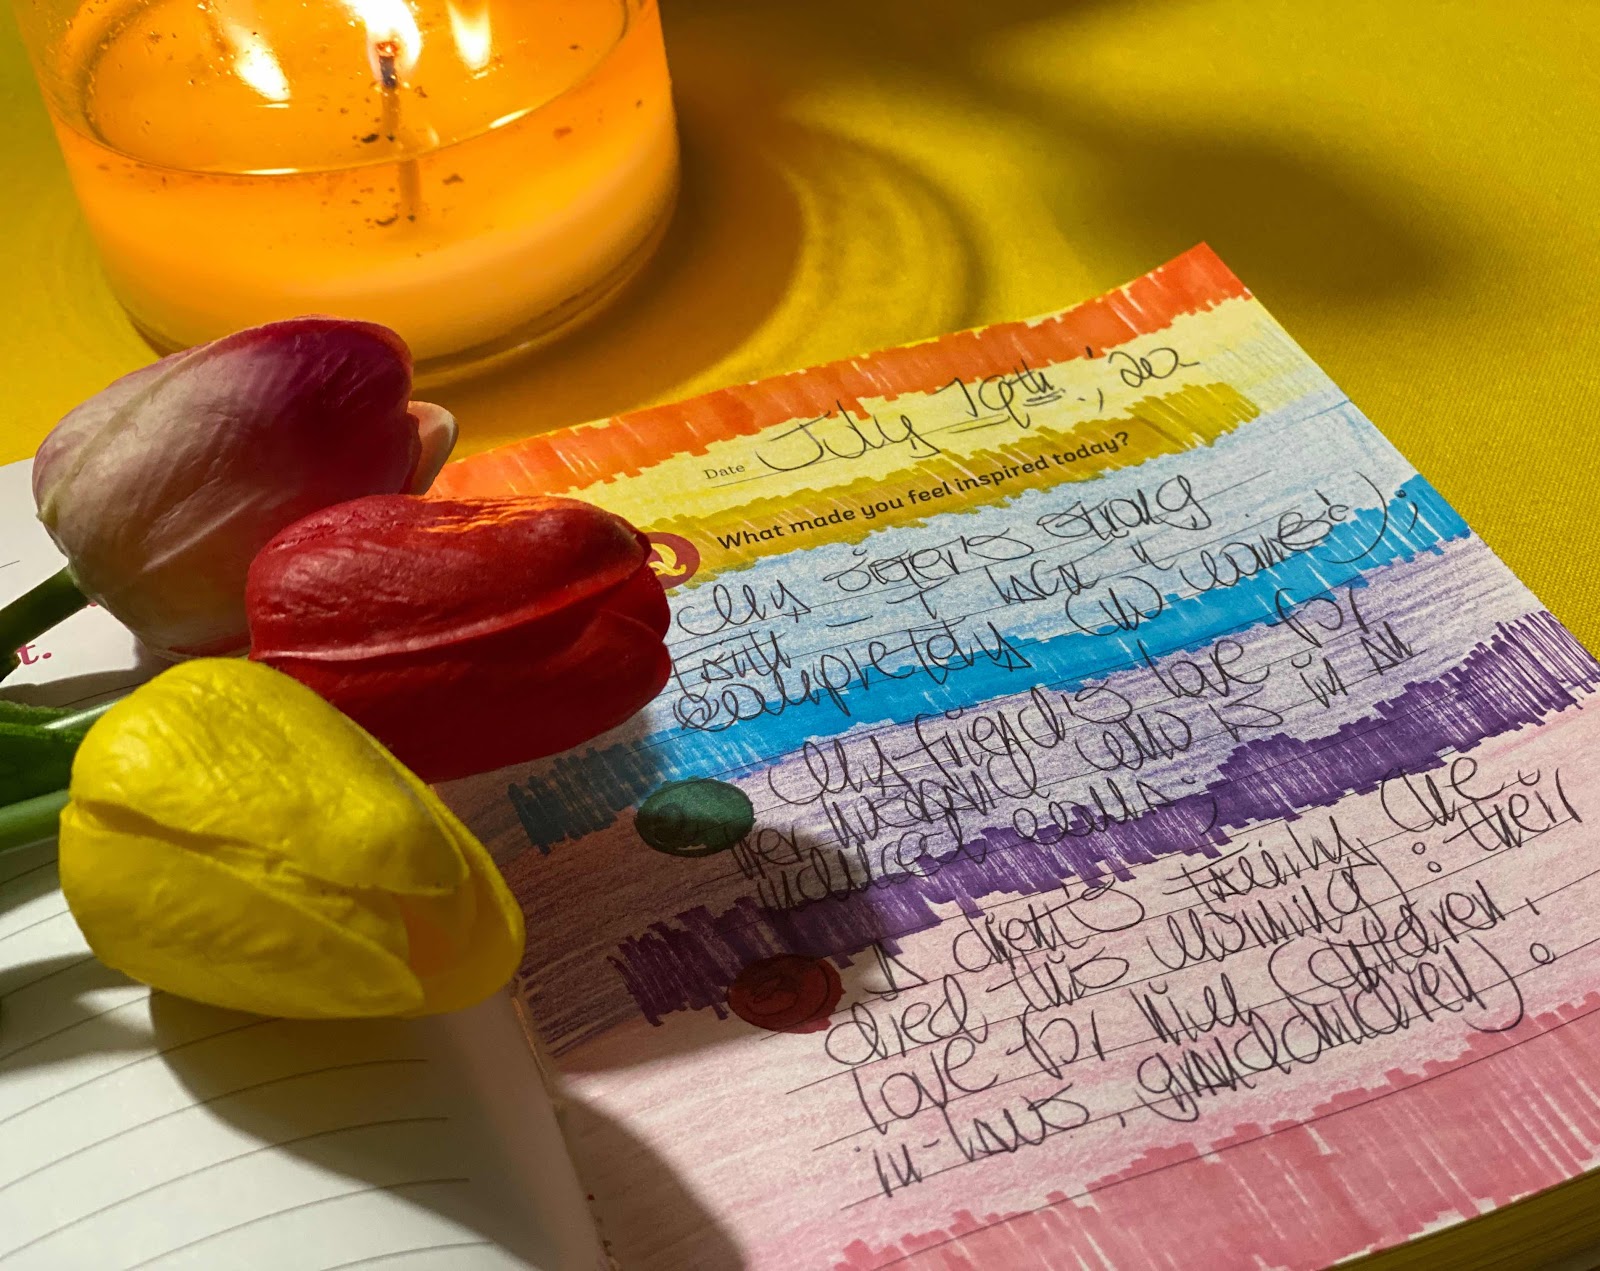 t.
Date July 19th, 202
What made you feel inspired today?
My sister's strong
faith - I lack it
completely (no comment);
2 My friend's love for
her husband who is in an
induced coma;
3 A client's family (he
died this morning): their
love for him (children,
in-laws, grandchildren).